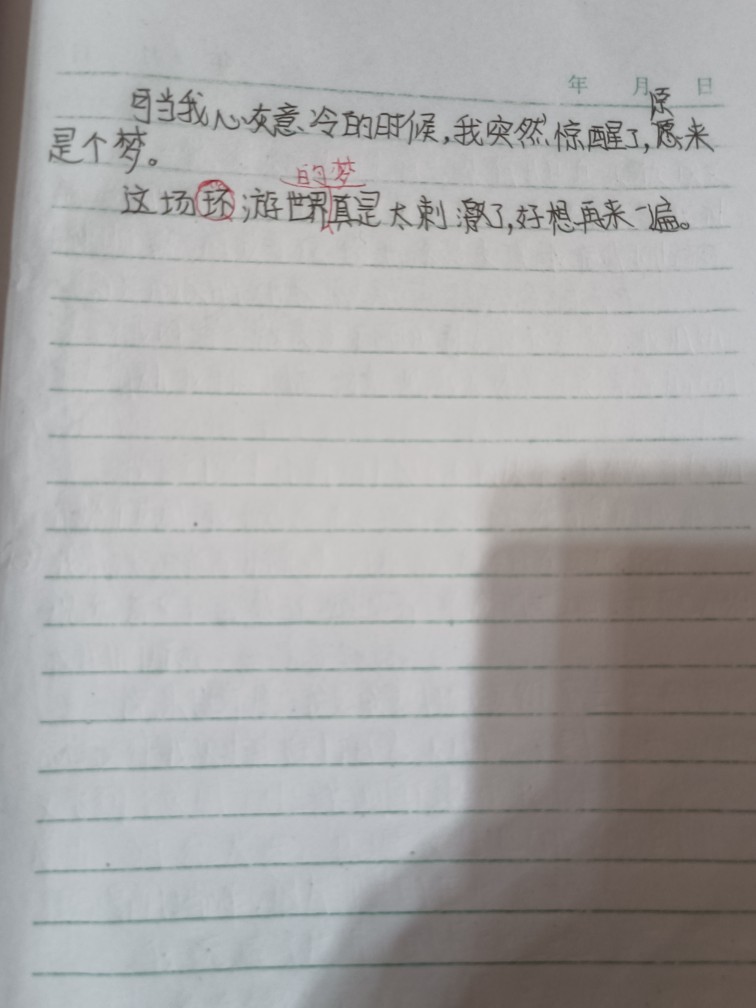 年 月 日
原
可当我心灰意冷的时候,我突然惊醒了,愿来
是个梦。
的梦
这场环游世界真是太刺激了,好想再来一遍。